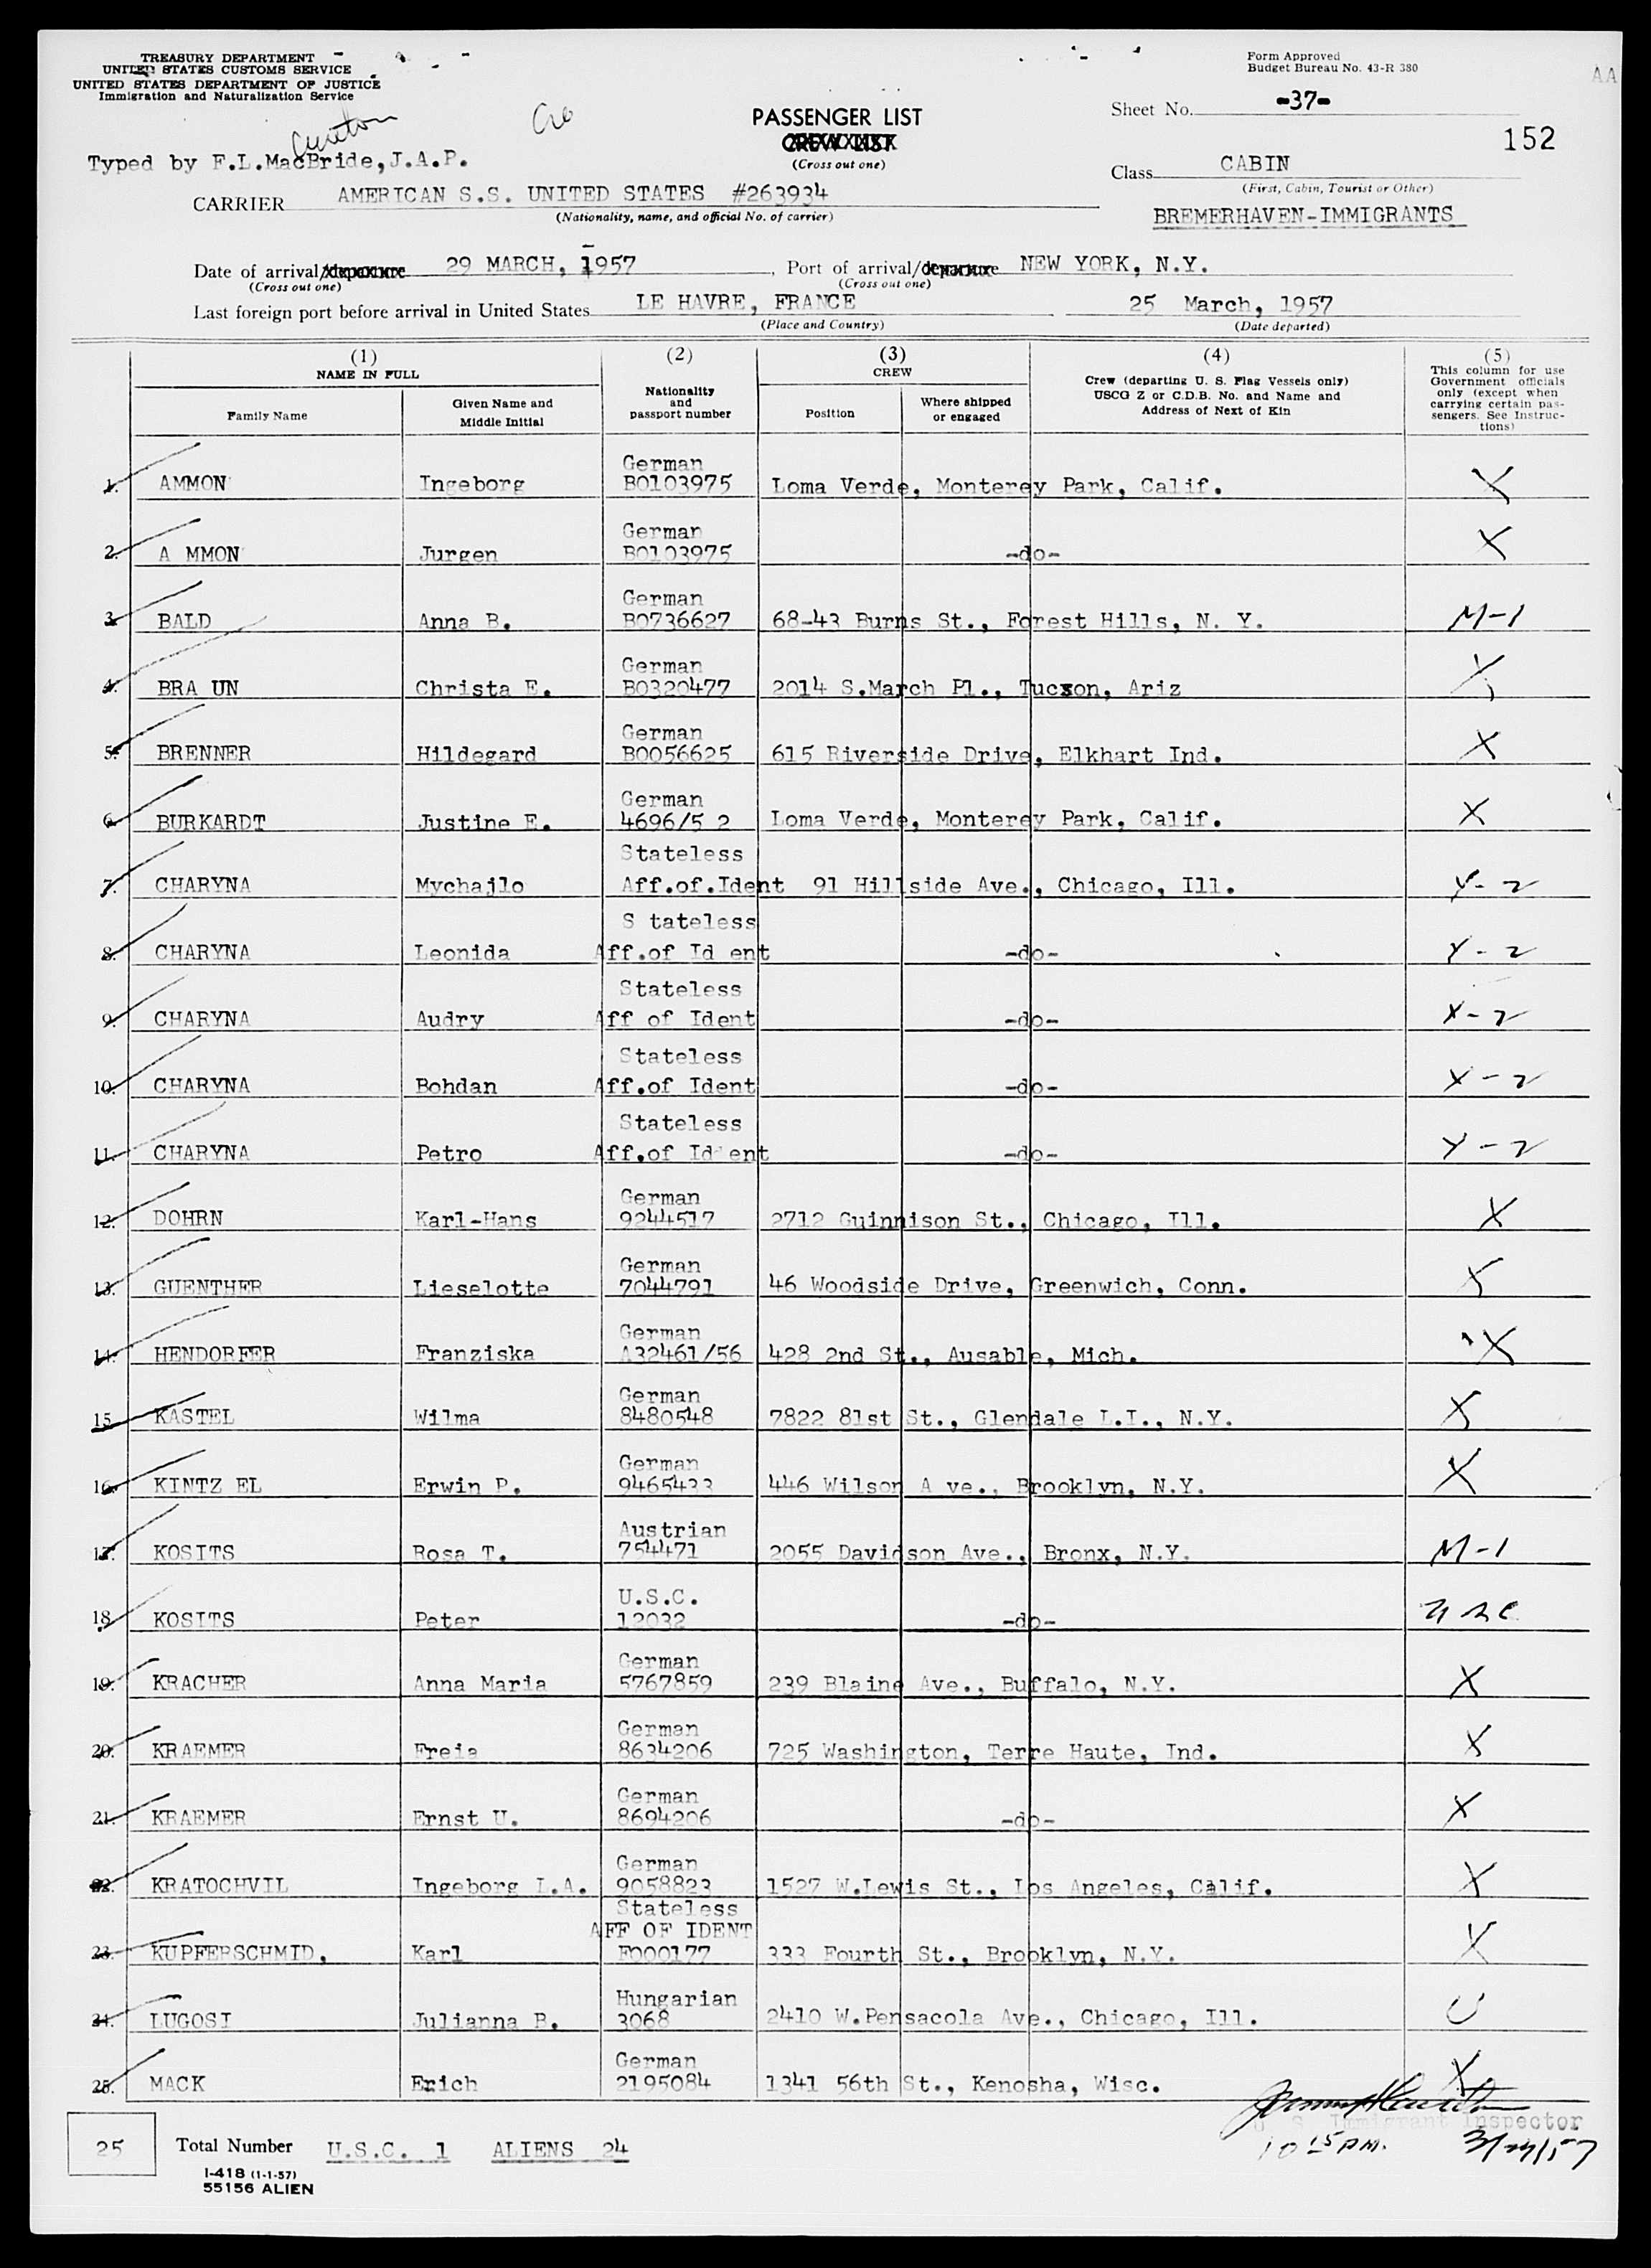 TREASURY DEPARTMENT
UNITED STATES CUSTOMS SERVICE
UNITED STATES DEPARTMENT OF JUSTICE
Immigration and Naturalization Service
Form Approved
Budget Bureau No. 43-R 380
AA
Sheet No. -37-
PASSENGER LIST
CREW LIST
(Cross out one)
152
Typed by F.L.MacBride,J.A.P.
Class CABIN
(First, Cabin, Tourist or Other)
CARRIER AMERICAN S.S. UNITED STATES #263934
(Nationality, name, and official No. of carrier)
BREMERHAVEN-IMMIGRANTS
Date of arrival/departure 29 MARCH, 1957, Port of arrival/departure NEW YORK, N.Y.
(Cross out one) (Cross out one)
Last foreign port before arrival in United States LE HAVRE, FRANCE 25 March, 1957
(Place and Country) (Date departed)
(1) NAME IN FULL (2) (3) CREW (4) (5)
Family Name Given Name and Middle Initial Nationality and passport number Position Where shipped or engaged Crew (departing U. S. Flag Vessels only) USCG Z or C.D.B. No. and Name and Address of Next of Kin This column for use Government officials only (except when carrying certain passengers. See Instructions)
German
1. AMMON Ingeborg B0103975 Loma Verde, Monterey Park, Calif. X
German
2. A MMON Jurgen B0103975 -do- X
German
3. BALD Anna B. B0736627 68-43 Burns St., Forest Hills, N. Y. M-1
German
4. BRA UN Christa E. B0320477 2014 S.March Pl., Tucson, Ariz X
German
5. BRENNER Hildegard B0056625 615 Riverside Drive, Elkhart Ind. X
German
6. BURKARDT Justine E. 4696/5 2 Loma Verde, Monterey Park, Calif. X
Stateless
7. CHARYNA Mychajlo Aff.of.Ident 91 Hillside Ave., Chicago, Ill. Y-2
S tateless
8. CHARYNA Leonida Aff.of Id ent -do- Y-2
Stateless
9. CHARYNA Audry Aff of Ident -do- X-2
Stateless
10. CHARYNA Bohdan Aff.of Ident -do- X-2
Stateless
11. CHARYNA Petro Aff.of Id ent -do- Y-2
German
12. DOHRN Karl-Hans 9244517 2712 Guinnison St., Chicago, Ill. X
German
13. GUENTHER Lieselotte 7044791 46 Woodside Drive, Greenwich, Conn. X
German
14. HENDORFER Franziska A32461/56 428 2nd St., Ausable, Mich. X
German
15. KASTEL Wilma 8480548 7822 81st St., Glendale L.I., N.Y. X
German
16. KINTZ EL Erwin P. 9465433 446 Wilson A ve., Brooklyn, N.Y. X
Austrian
17. KOSITS Rosa T. 754471 2055 Davidson Ave., Bronx, N.Y. M-1
U.S.C.
18. KOSITS Peter 12032 -do- USC
German
19. KRACHER Anna Maria 5767859 239 Blaine Ave., Buffalo, N.Y. X
German
20. KRAEMER Freia 8634206 725 Washington, Terre Haute, Ind. X
German
21. KRAEMER Ernst U. 8694206 -do- X
German
22. KRATOCHVIL Ingeborg L.A. 9058823 1527 W.Lewis St., Los Angeles, Calif. X
Stateless
AFF OF IDENT
23. KUPFERSCHMID, Karl F000177 333 Fourth St., Brooklyn, N.Y. X
Hungarian
24. LUGOSI Julianna B. 3068 2410 W.Pensacola Ave., Chicago, Ill. U
German
25. MACK Erich 2195084 1341 56th St., Kenosha, Wisc. X
U. S. Immigrant Inspector
25 Total Number U.S.C. 1 ALIENS 24
10 15 PM. 3/29/57
I-418 (1-1-57)
55156 ALIEN